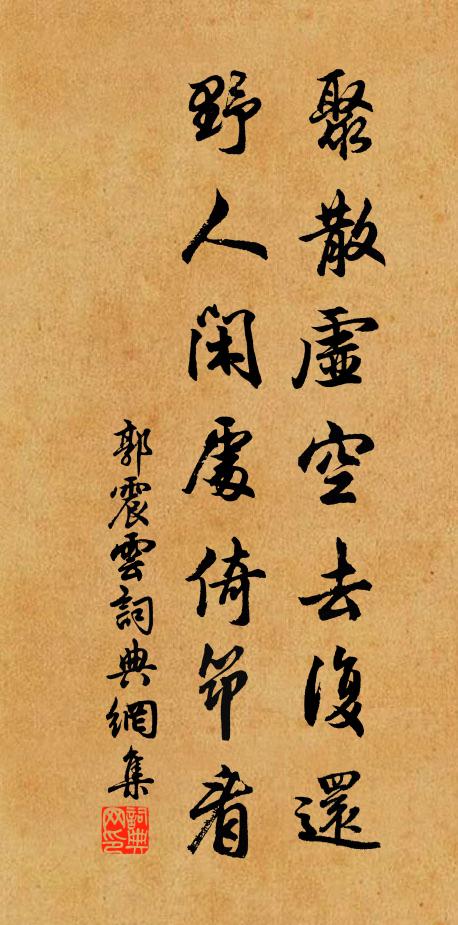 聚散虛空去復還
野人閑處倚筇看
郭震雲詞典網集
詞典网印